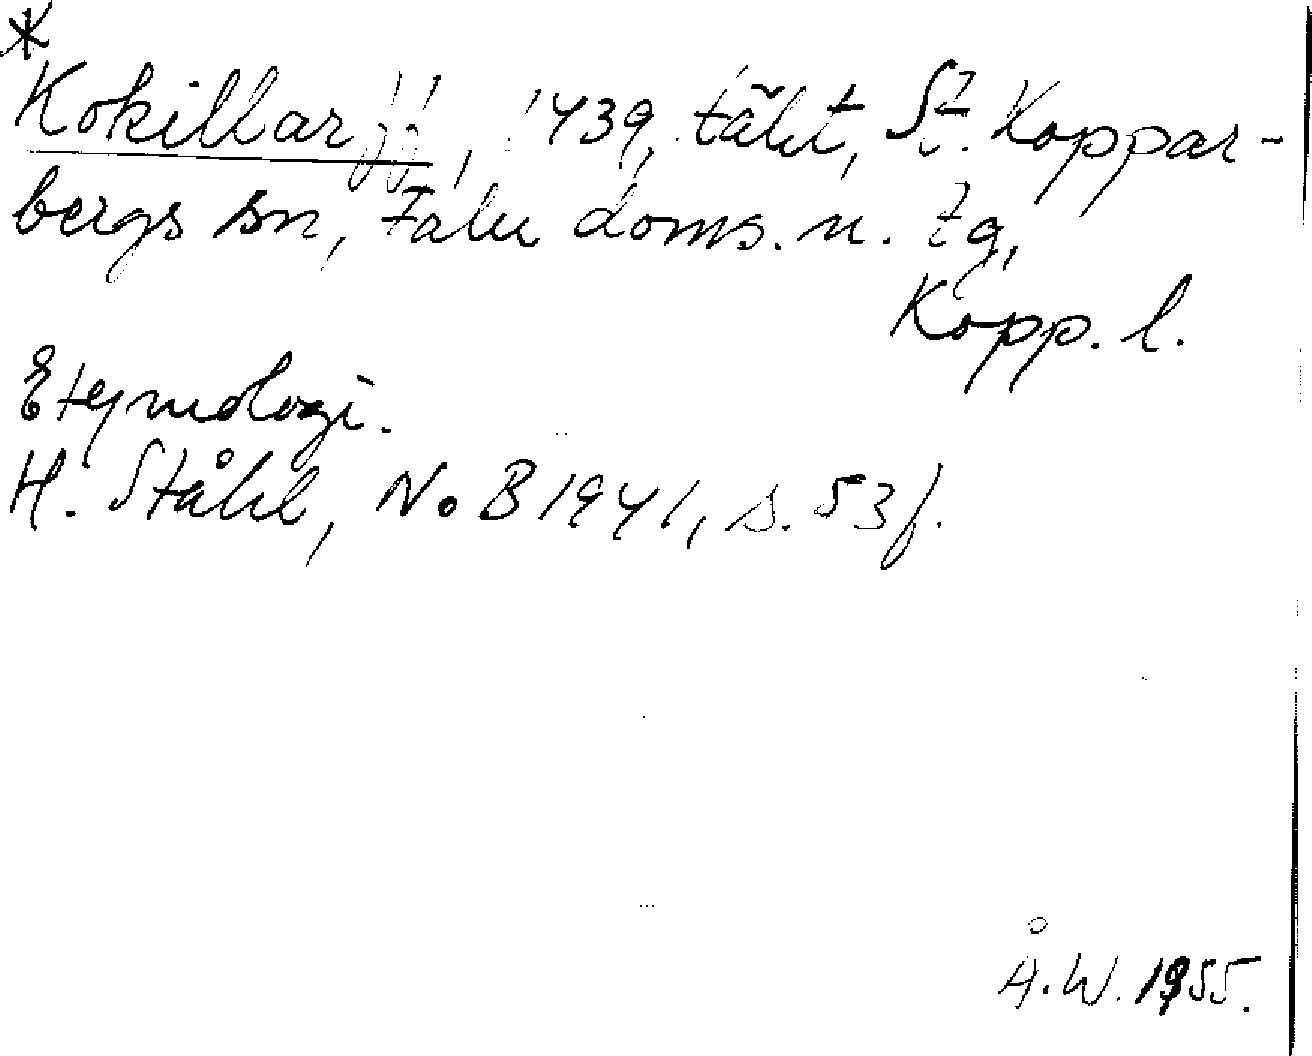 *
Kokillarff, 1439, täkt, St. Koppar-
bergs sn, Falu doms. n. tg,
Kopp. l.
Etymologi.
H. Ståhl, NoB 1941, s. 53 f.
Å.W. 1955.